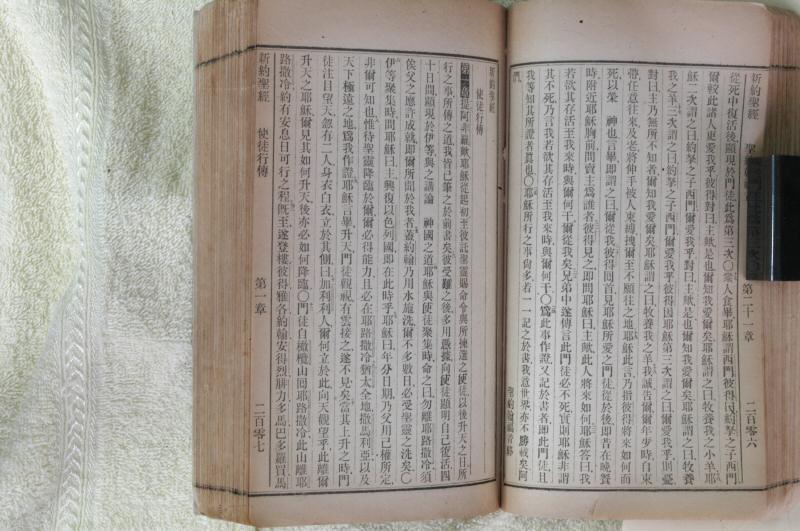 新約聖經
第二十一章
二百零六
從死中復活後顯現於門徒此爲第三次〇衆人食畢耶穌謂西門彼得曰約拏之子西門
爾較此諸人更愛我乎彼得對曰主歟是也爾知我愛爾矣耶穌謂之曰牧養我之小羊耶
穌二次謂之曰約拏之子西門爾愛我乎對曰主歟是也爾知我愛爾矣耶穌謂之曰牧養
我之羊三次謂之曰約拏之子西門爾愛我乎彼得因耶穌第三次謂之曰爾愛我乎則憂
對曰主乃無所不知者爾知我愛爾矣耶穌謂之曰牧養我之羊我誠告爾爾年少時自束
帶任意往來及老將伸手被人束縛拽爾至不願往之地耶穌此言乃指彼得將來如何而
死以榮 神也言畢即謂之曰爾從我彼得回首見耶穌所愛之門徒從於後即昔在晚餐
時附近耶穌胸前間賣主爲誰者彼得見之即問耶穌曰主歟此人將來如何耶穌答曰我
若欲其存活至我來時與爾何干爾從我矣兄弟中遂傳言此門徒必不死實則耶穌非謂
其不死乃言我若欲其存活至我來時與爾何干〇爲此事作證又記於書者即此門徒且
我等知其所證者眞也〇耶穌所行之事尙多若一一記之於書我意世界亦不勝載矣阿
們
新約聖經
使徒行傳
提阿非羅歟耶穌從起初至彼託聖靈賜命令與所揀選之使徒以後升天之日所
行之事所傳之道我皆已筆之於前書矣彼受難之後多用憑據向使徒顯明自己復活四
十日間顯現於伊等與之講論 神國之道耶穌與使徒聚集時命之曰勿離耶路撒冷須
俟父之應許成就即爾所聞於我者蓋約翰乃用水施洗爾不多數日必受聖靈之洗矣〇
伊等聚集時問耶穌曰主興復以色列國即在此時乎耶穌曰年分日期乃父用己權所定
非爾可知也惟待聖靈降臨於爾爾必得能力且必在耶路撒冷猶太全地撒馬利亞以及
天下極遠之地爲我作證耶穌言畢升天門徒觀視有雲接之遂不見矣當其上升之時門
徒注目望天忽有二人身衣白衣立於其側曰加利利人爾何立於此向天觀望乎此離爾
升天之耶穌爾見其如何升天後亦必如何降臨〇門徒自橄欖山囘耶路撒冷此山離耶
路撒冷約有安息日可行之程旣至遂登樓彼得雅各約翰安得烈腓力多馬巴多羅買馬
新約聖經
使徒行傳
第一章
二百零七